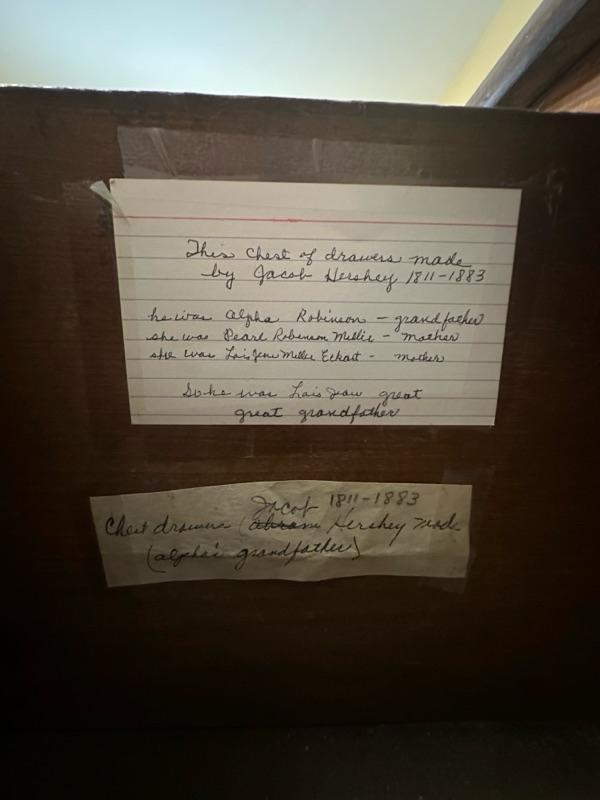 This chest of drawers made
by Jacob Hershey 1811-1883
he was Alpha Robinson - grandfather
she was Pearl Robinson Miller - Mother
she was Lois Jene Miller Eckart - mother
So he was Lois Jean great
great grandfather
Jacob 1811-1883
Chest drawers (abram Hershey made
(alpha's grandfather)